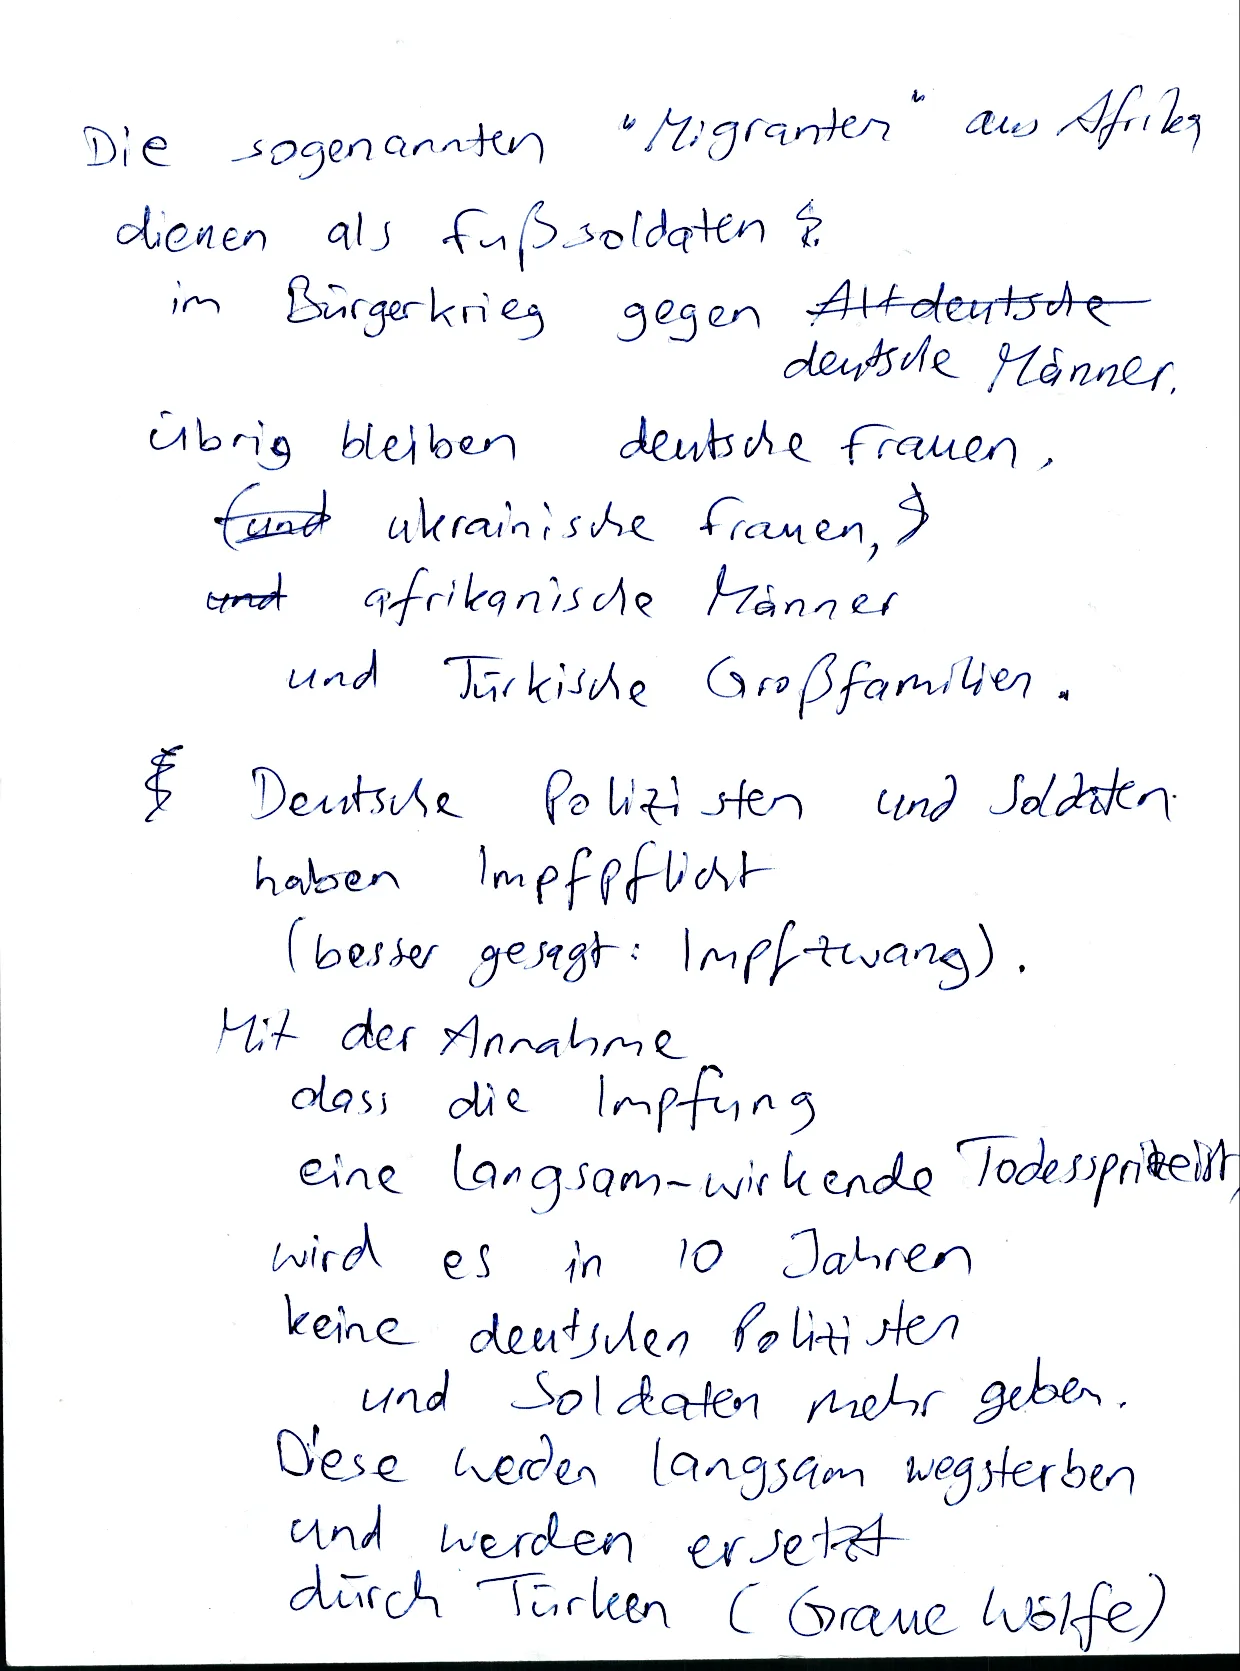 Die sogenannten "Migranten" aus Afrika
dienen als Fußsoldaten
im Bürgerkrieg gegen Altdeutsche
deutsche Männer.
übrig bleiben deutsche Frauen,
(und ukrainische Frauen,)
und afrikanische Männer
und Türkische Großfamilien.
Deutsche Polizisten und Soldaten
haben Impfpflicht
(besser gesagt: Impfzwang).
Mit der Annahme
dass die Impfung
eine langsam-wirkende Todesspritze ist,
wird es in 10 Jahren
keine deutschen Polizisten
und Soldaten mehr geben.
Diese werden langsam wegsterben
und werden ersetzt
durch Türken (Graue Wölfe)